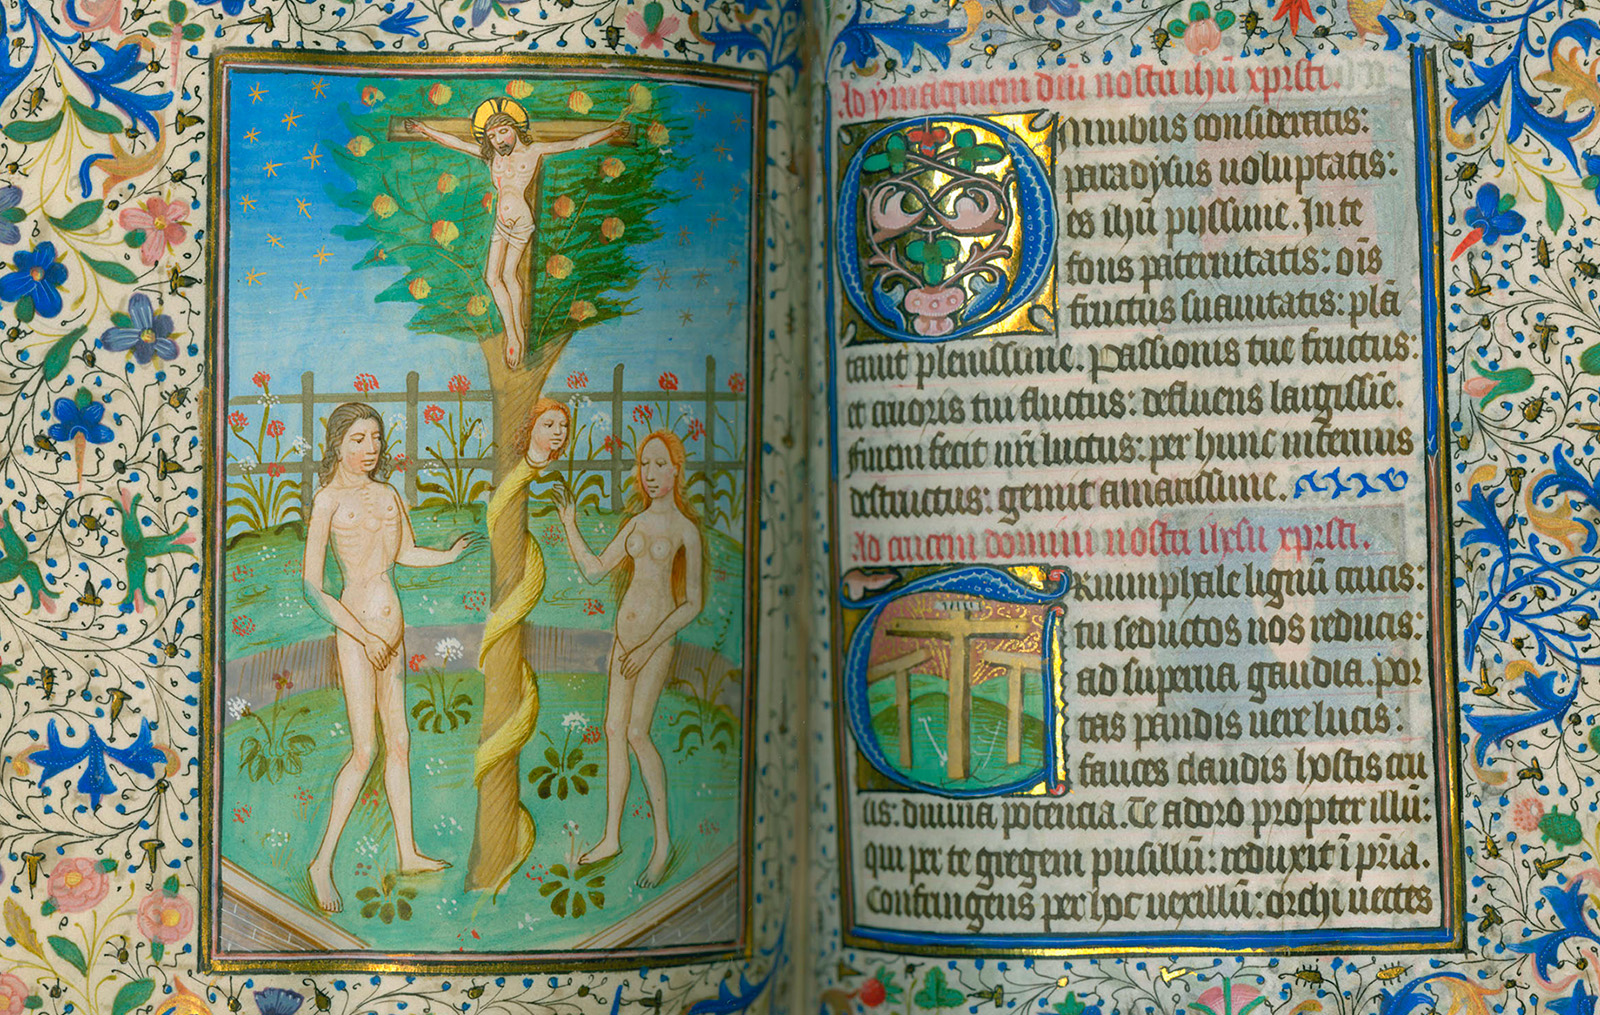 Ad ymaginem dnī nostri ihū xpristi.
Omnibus consideratis:
paradysus uoluptatis:
es ihū pijssime. In te
fons paternitatis: oīs
fructus suauitatis: plā
tauit plenissime. Passionis tue fructus:
et cruoris tui fluctus: defluens largissīē.
finem fecit nrī luctus: per hunc infernus
destructus: gemit amarissime.
Ad crucem domini nostri ihesu xpristi.
Triumphale lignū crucis:
tu seductos nos reducis:
ad superna gaudia. por
tas pandis uere lucis:
fauces claudis hostis cru
cis: diuina potencia. Te adoro propter illū:
qui per te gregem pusillū: reduxit ī pr̄ia.
Confringens per hoc uexillū: orchi uectes